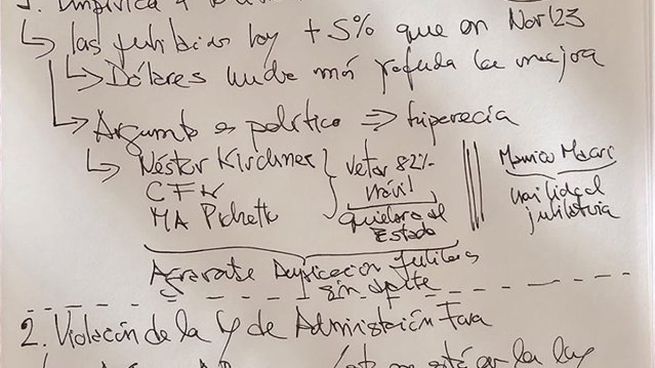 ↳ las jubilacion hoy +5% que en Nov'23
↳ Dólares mucho más profunda la mejora
↳ Argumento es político ⇒ hipocresía
↳ Néstor Kirchner
CFK
MA Pichetto
vetar 82%
móvil
quiebra al
Estado
Mauricio Macri
movilidad
jubilatoria
Duplicación Jubilados
sin aporte
2. Violación de la Ley de Administración Fina
está en la ley